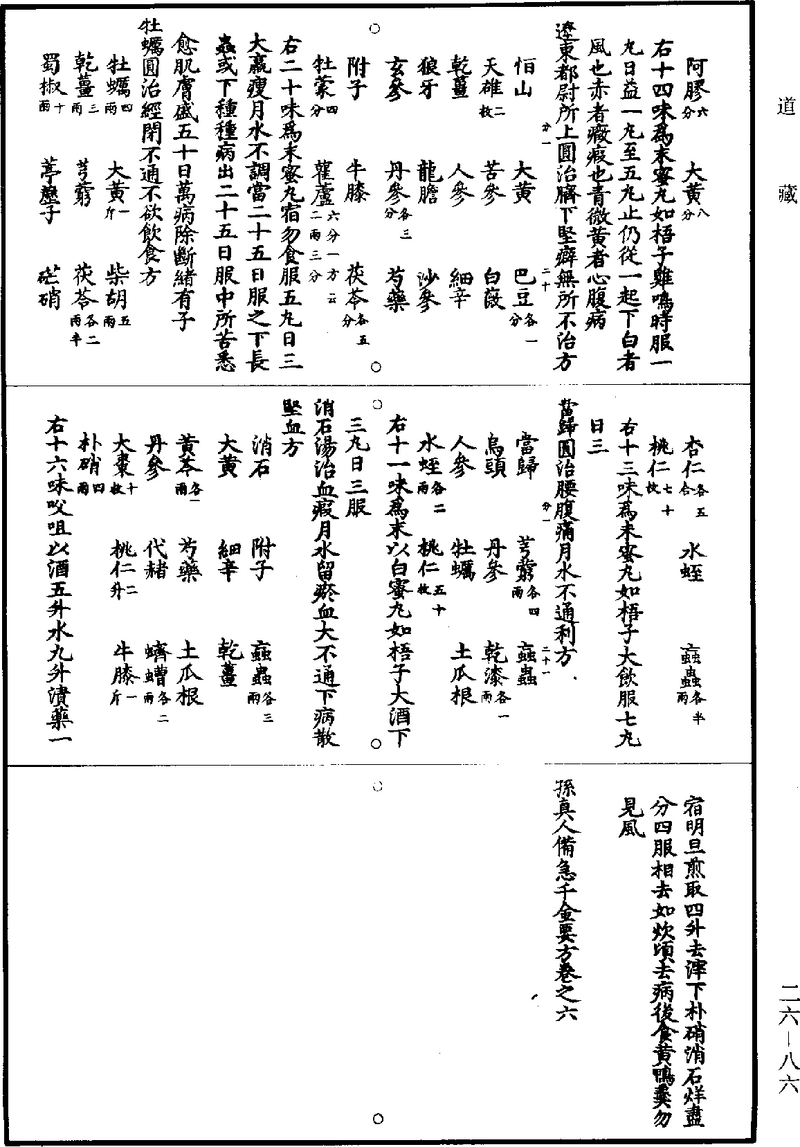 道藏
阿膠六分 大黃八分
右十四味為末蜜丸如梧子雞鳴時服一
丸日益一丸至五丸止仍從一起下白者
風也赤者癥瘕也青微黃者心腹病
遼東都尉所上圓治臍下堅癖無所不治方
分一 二十
恒山 大黃 巴豆各一分
天雄二枚 苦參 白薇
乾薑 人參 細辛
狼牙 龍膽 沙參
玄參 丹參各三分 芍藥
附子 牛膝 茯苓各五分
牡蒙四分 雚蘆六分一方云二兩三分
右二十味為末蜜丸宿勿食服五丸日三
大羸瘦月水不調當二十五日服之下長
蟲或下種種病出二十五日服中所苦悉
愈肌膚盛五十日萬病除斷緒有子
牡蠣圓治經閉不通不欲飲食方
牡蠣四兩 大黃一斤 柴胡五兩
乾薑三兩 芎藭 茯苓各二兩半
蜀椒十兩 葶藶子 芒硝
杏仁各五合 水蛭 蝱蟲各半兩
桃仁七十枚
右十三味為末蜜丸如梧子大飲服七丸
日三
當歸圓治腰腹痛月水不通利方
分一 二十一
當歸 芎藭各四兩 蝱蟲
烏頭 丹參 乾漆各一兩
人參 牡蠣 土瓜根
水蛭各二兩 桃仁五十枚
右十一味為末以白蜜丸如梧子大酒下
三丸日三服
消石湯治血瘕月水留瘀血大不通下病散
堅血方
消石 附子 蝱蟲各三兩
大黃 細辛 乾薑
黃芩各一兩 芍藥 土瓜根
丹參 代赭 蠐螬各二兩
大棗十枚 桃仁二升 牛膝一斤
朴硝四兩
右十六味㕮咀以酒五升水九升漬藥一
宿明旦煎取四升去滓下朴硝消石烊盡
分四服相去如炊頃去病後食黃鴨羹勿
見風
孫真人備急千金要方卷之六
二六—八六